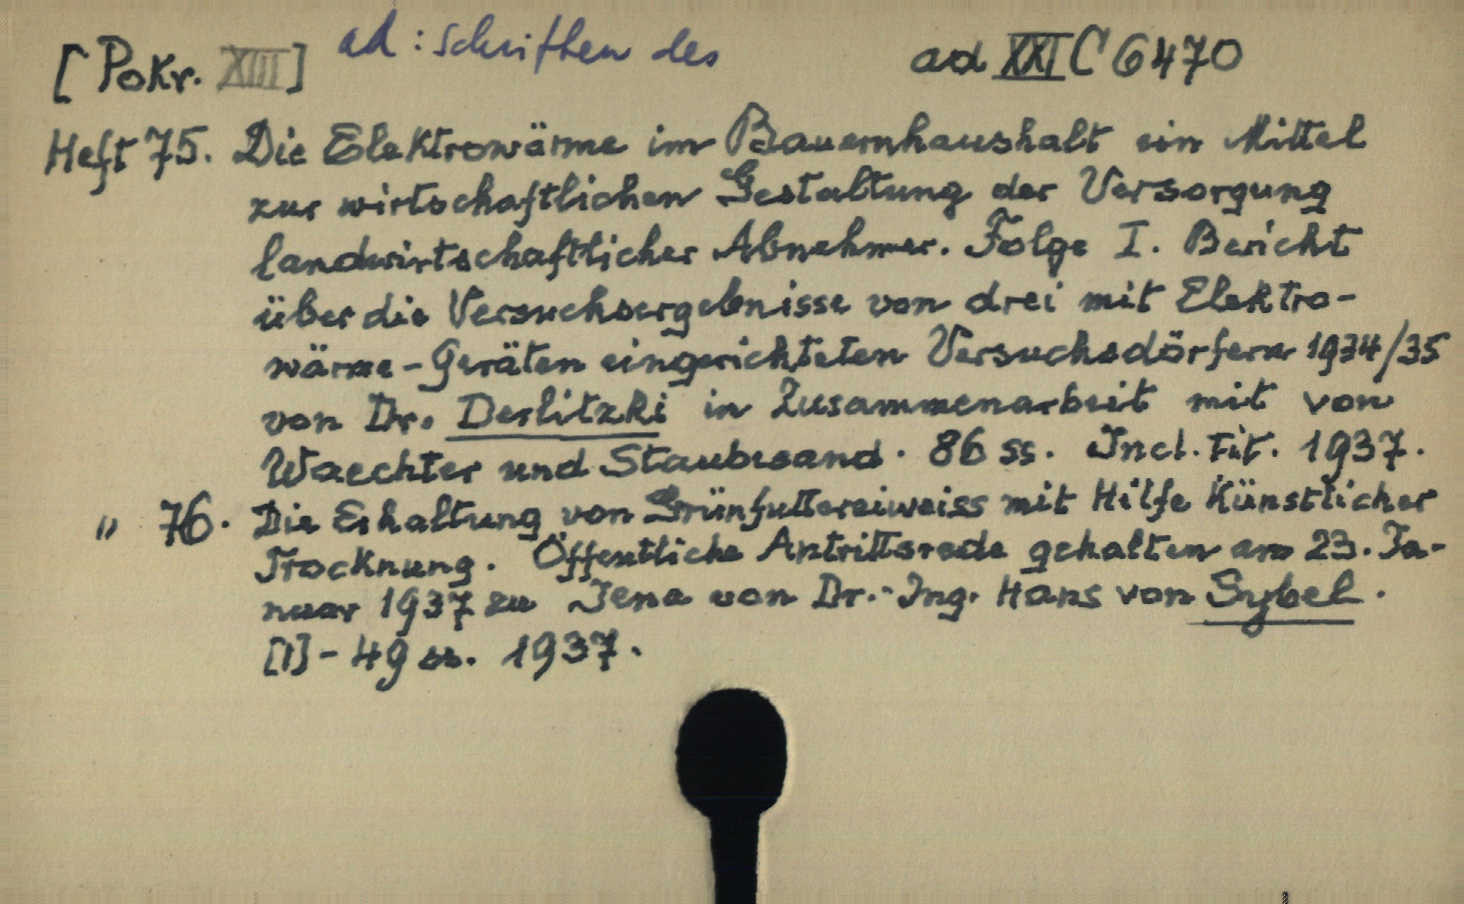 [Pokr. XIII] ad: Schriften des ad XXI C 6470
Heft 75. Die Elektrowärme im Bauernhaushalt ein Mittel
zur wirtschaftlichen Gestaltung der Versorgung
landwirtschaftlicher Abnehmer. Folge I. Bericht
über die Versuchsergebnisse von drei mit Elektro-
wärme-Geräten eingerichteten Versuchsdörfern 1934/35
von Dr. Derlitzki in Zusammenarbeit mit von
Waechter und Staubesand. 86 ss. Incl. tit. 1937.
" 76. Die Erhaltung von Grünfuttereiweiss mit Hilfe Künstlicher
Trocknung. Öffentliche Antrittsrede gehalten am 23. Ja-
nuar 1937 zu Jena von Dr.-Ing. Hans von Sybel.
[1]-49 ss. 1937.